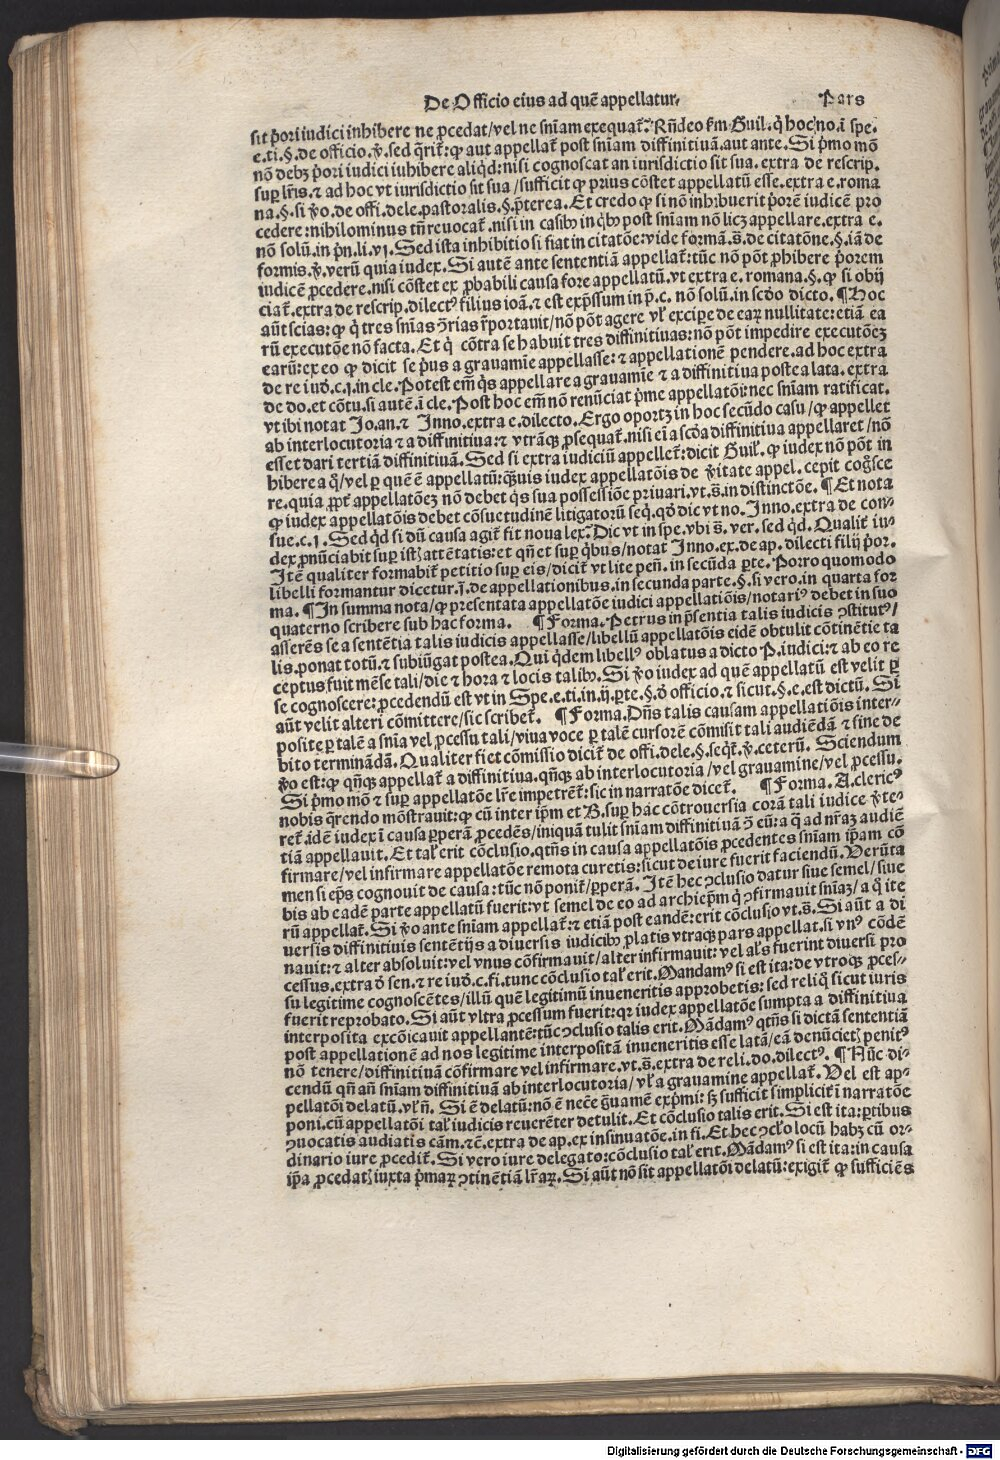 De Officio eius ad quē appellatur. Pars
sit p̄ori iudici inhibere ne ꝓcedat/vel ne sniam exequat᷑. Rn̄deo ẜm Guil. q̇ hoc no. ī spe.
e. ti. §. de officio. v̄. sed q̄rit᷑: ꝙ aut appellat᷑ post sniam diffinitiuā. aut ante. Si p̄mo mō
nō debꝫ p̄ori iudici inhibere aliqd: nisi cognoscat an iurisdictio sit sua. extra de rescrip.
suꝑ lr̄is. ⁊ ad hoc vt iurisdictio sit sua/sufficit ꝙ prius cōstet appellatū esse. extra e. roma
na. §. si v̄o. de offi. dele. pastoralis. §. p̄terea. Et credo ꝙ si nō inhibuerit p̄orē iudicē pro
cedere: nihilominus tn̄ reuocat᷑. nisi in casibꝰ in qbꝰ post sniam nō licꝫ appellare. extra e.
nō solū. in pn̄. li. vi. Sed ista inhibitio si fiat in citatōe: vide formā. s̄. de citatōne. §. iā de
formis. v̄. verū quia iudex. Si autē ante sententiā appellat᷑: tūc nō pōt ꝓhibere p̄orem
iudicē ꝓcedere. nisi cōstet ex ꝓbabili causa fore appellatū. vt extra e. romana. §. ꝙ si obij
ciat᷑. extra de rescrip. dilectꝰ filius ioā. ⁊ est exp̄ssum in p̄. c. nō solū. in scd̄o dicto. ¶ Hoc
aūt scias: ꝙ q̇ tres snias ꝯrias r̄portauit/nō pōt agere vl̓ excipe de eaꝝ nullitate: etiā ea
rū executōe nō facta. Et q̇ cōtra se habuit tres diffinitiuas: nō pōt impedire executōeꝫ
earū: ex eo ꝙ dicit se p̄us a grauamīe appellasse: ⁊ appellationē pendere. ad hoc extra
de re iud. c. j. in cle. Potest em̄ qs appellare a grauamīe ⁊ a diffinitiua postea lata. extra
de do. et cōtu. si autē. ī cle. Post hoc em̄ nō renūciat p̄me appellatōi: nec sniam ratificat.
vt ibi notat Jo. an. ⁊ Inno. extra e. dilecto. Ergo oportꝫ in hoc secūdo casu/ꝙ appellet
ab interlocutoria ⁊ a diffinitiua: ⁊ vtrāꝙ ꝓsequat᷑. nisi ei a scd̄a diffinitiua appellaret/nō
esset dari tertiā diffinitiuā. Sed si extra iudiciū appellet᷑: dicit Guil. ꝙ iudex nō pōt in
hibere a q̇/vel ꝑ quē ē appellatū: q̄uis iudex appellatōis de v̄itate appel. cepit cogsce
re. quia ꝓpt᷑ appellatōeꝫ nō debet qs sua possessiōe priuari. vt. s̄. in distinctōe. ¶ Et nota
ꝙ iudex appellatōis debet cōsuetudinē litigatorū seq. qd̄ dic vt no. Inno. extra de con-
sue. c. j. Sed qd si dū causa agit᷑ fit noua lex: Dic vt in spe. vbi s̄. ver. sed qd. Qualit᷑ iu-
dex ꝓnūciabit suꝑ istꝭ attētatis: et qn̄ et suꝑ qbus/notat Inno. ex. de ap. dilecti filij p̄or.
Itē qualiter formabit᷑ petitio suꝑ eis/dicit᷑ vt lite pen̄. in secūda ꝑte. Porro quomodo
libelli formantur dicetur. ī. de appellationibus. in secunda parte. §. si vero. in quarta for
ma. ¶ In summa nota/ꝙ presentata appellatōe iudici appellatiōis/notariꝰ debet in suo
quaterno scribere sub hac forma. ¶ Forma. Petrus in pn̄sentia talis iudicis ꝯstitutꝰ/
asserēs se a sentētia talis iudicis appellasse/libellū appellatōis eidē obtulit cōtinētie ta
lis. ponat totū. ⁊ subiūgat postea. Qui qdem libellꝰ oblatus a dicto P. iudici: ⁊ ab eo re
ceptus fuit mēse tali/die ⁊ hora ⁊ locis talibꝰ. Si v̄o iudex ad quē appellatū est velit ꝑ
se cognoscere: ꝓcedendū est vt in Spe. e. ti. in. ij. ꝑte. §. d̄ officio. ⁊ sicut. §. e. est dictū. Si
aūt velit alteri cōmittere/sic scribet᷑. ¶ Forma. Dn̄s talis causam appellatiōis inter-
posite ꝑ talē a snia vel ꝓcessu tali/viua voce ꝑ talē cursorē cōmisit tali audiēdā ⁊ fine de
bito terminādā. Qualiter fiet cōmissio dicit᷑ de offi. dele. §. seqt᷑. v̄. ceterū. Sciendum
v̄o est: ꝙ qn̄qꝫ appellat᷑ a diffinitiua. qn̄qꝫ ab interlocutoria/vel grauamine/vel ꝓcessu.
Si p̄mo mō ⁊ suꝑ appellatōe lr̄e impetrēt᷑: sic in narratōe dicet᷑. ¶ Forma. A. clericꝰ
nobis q̄rendo mōstrauit: ꝙ cū inter ip̄m et B. suꝑ hac cōtrouersia corā tali iudice v̄te-
ret᷑. idē iudex ī causa ꝑperā ꝓcedēs/iniquā tulit sniam diffinitiuā ꝯ eū: a q̇ ad nr̄aꝫ audiē
tiā appellauit. Et tal̓ erit cōclusio. qtn̄s in causa appellatōis ꝓcedentes sniam ip̄am cō
firmare/vel infirmare appellatōe remota curetis: sicut de iure fuerit faciendū. Verūta
men si ep̄s cognouit de causa: tūc nō ponit᷑/ꝑperā. Itē hec ꝯclusio datur siue semel/siue
bis ab eadē parte appellatū fuerit: vt semel de eo ad archiep̄m q̇ ꝯfirmauit sniaꝫ/a q̇ ite
rū appellat᷑. Si v̄o ante sniam appellat᷑: ⁊ etiā post eandē: erit cōclusio vt. s̄. Si aūt a di
uersis diffinitiuis sentētijs a diuersis iudicibꝰ ꝓlatis vtraqꝫ pars appellat. si vnꝰ cōdē
nauit: ⁊ alter absoluit: vel vnus cōfirmauit/alter infirmauit: vel al̓s fuerint diuersi pro
cessus. extra d̄ sen. ⁊ re iud. c. fi. tunc cōclusio tal̓ erit. Mandamꝰ si est ita: de vtroqꝫ ꝓces-
su legitime cognoscētes/illū quē legitimū inueneritis approbetis: sed reliq̄ sicut iuris
fuerit reprobato. Si aūt vltra ꝓcessum fuerit: qr iudex appellatōe sumpta a diffinitiua
interposita excōicauit appellantē: tūc ꝯclusio talis erit. Mādamꝰ qtn̄s si dictā sententiā
post appellationē ad nos legitime interpositā inueneritis esse latā/eā denūcietꝭ penitꝰ
nō tenere/diffinitiuā cōfirmare vel infirmare. vt. s̄. extra de reli. do. dilectꝰ. ¶ Nūc di-
cendū qn̄ an̄ sniam diffinitiuā ab interlocutoria/vl̓ a grauamine appellat᷑. Vel est ap-
pellatōi delatū. vl̓ n̄. Si ē delatū: nō ē nec̄e g̃uamē exp̄mi: sꝫ sufficit simplicit᷑ ī narratōe
poni. cū appellatōi tal̓ iudicis reuerēter detulit. Et cōclusio talis erit. Si est ita: ꝑtibus
ꝯuocatis audiatis cām. ⁊c̄. extra de ap. ex insinuatōe. in fi. Et hec ꝯclo locū habꝫ cū or-
dinario iure ꝓcedit᷑. Si vero iure delegato: cōclusio tal̓ erit. Mādamꝰ si est ita: in causa
ip̄a ꝓcedatꝭ iuxta p̄maꝝ ꝯtinētiā lr̄aꝝ. Si aūt nō sit appellatōi delatū: exigit᷑ ꝙ sufficiēs
Digitalisierung gefördert durch die Deutsche Forschungsgemeinschaft - DFG